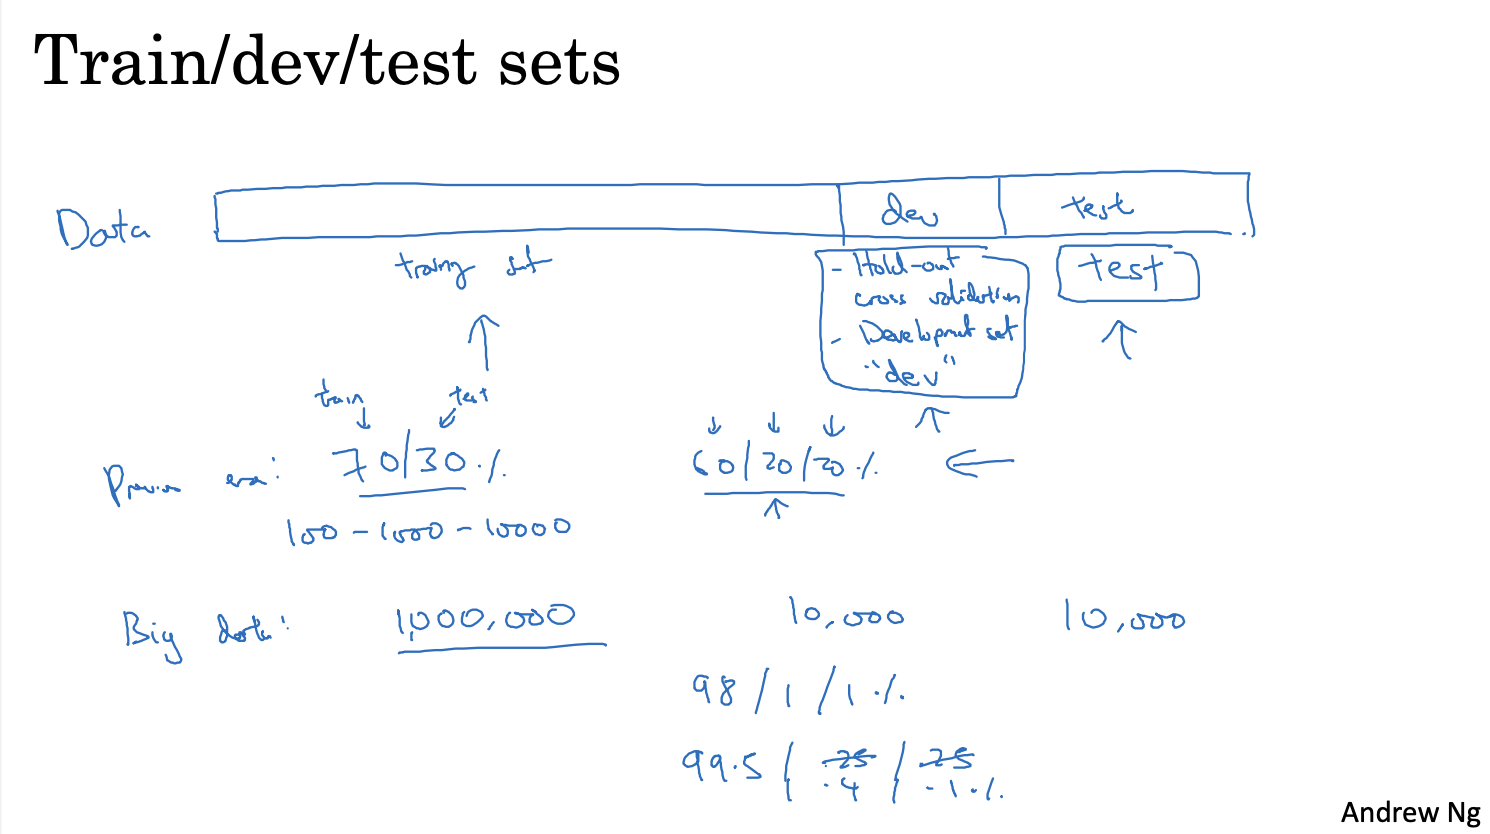 Train/dev/test sets
Data
dev
test
training set
- Hold-out
cross validation
- Development set
"dev"
test
train
test
Previous era:
70/30 %
60/20/20 %
100 - 1000 - 10000
Big data:
1,000,000
10,000
10,000
98 / 1 / 1 %
99.5 / .25 / .25
.4 .1 %
Andrew Ng